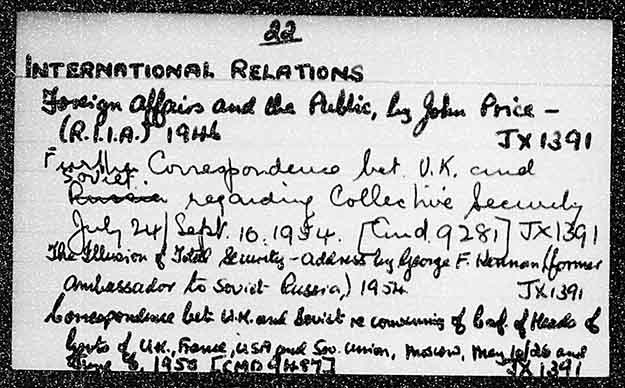 22
INTERNATIONAL RELATIONS
Foreign Affairs and the Public, by John Price –
(R.I.I.A.) 1946 JX1391
Further Correspondence bet. U.K. and
Soviet
Russia regarding Collective Security
July 24/Sept. 10. 1954. [Cmd. 9281] JX1391
The Illusion of Total Security – address by George F. Kennan (former
ambassador to Soviet Russia,) 1954 JX1391
Correspondence bet. U.K. and Soviet re convening of Conf. of Heads of
Govts of U.K., France, USA and Sov. Union, Moscow, May and
June 1955 [CMD 9487] JX1391